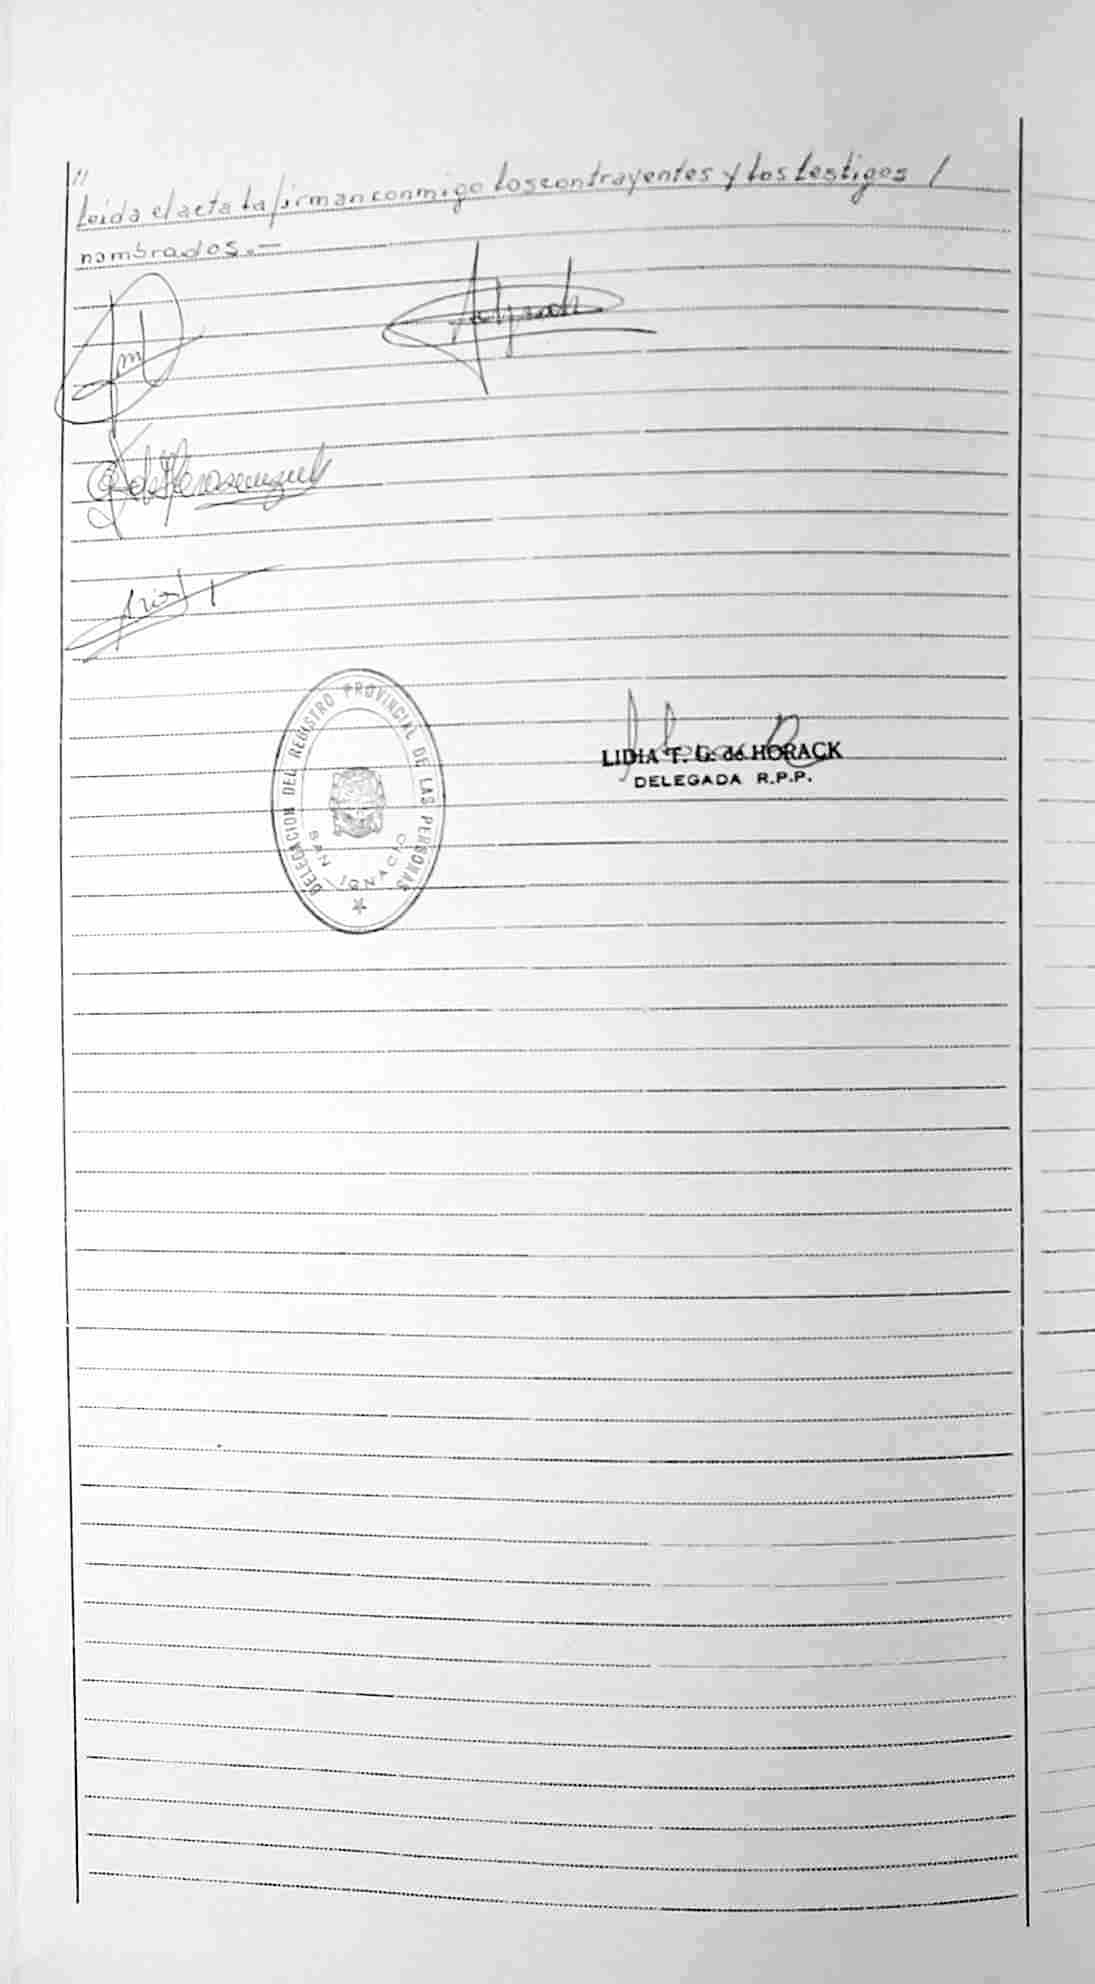 //
Leida el acta la firman conmigo los contrayentes y los testigos /
nombrados.—
DELEGACION DEL REGISTRO PROVINCIAL DE LAS PERSONAS
SAN IGNACIO
LIDIA T. G. de HORACK
DELEGADA R.P.P.